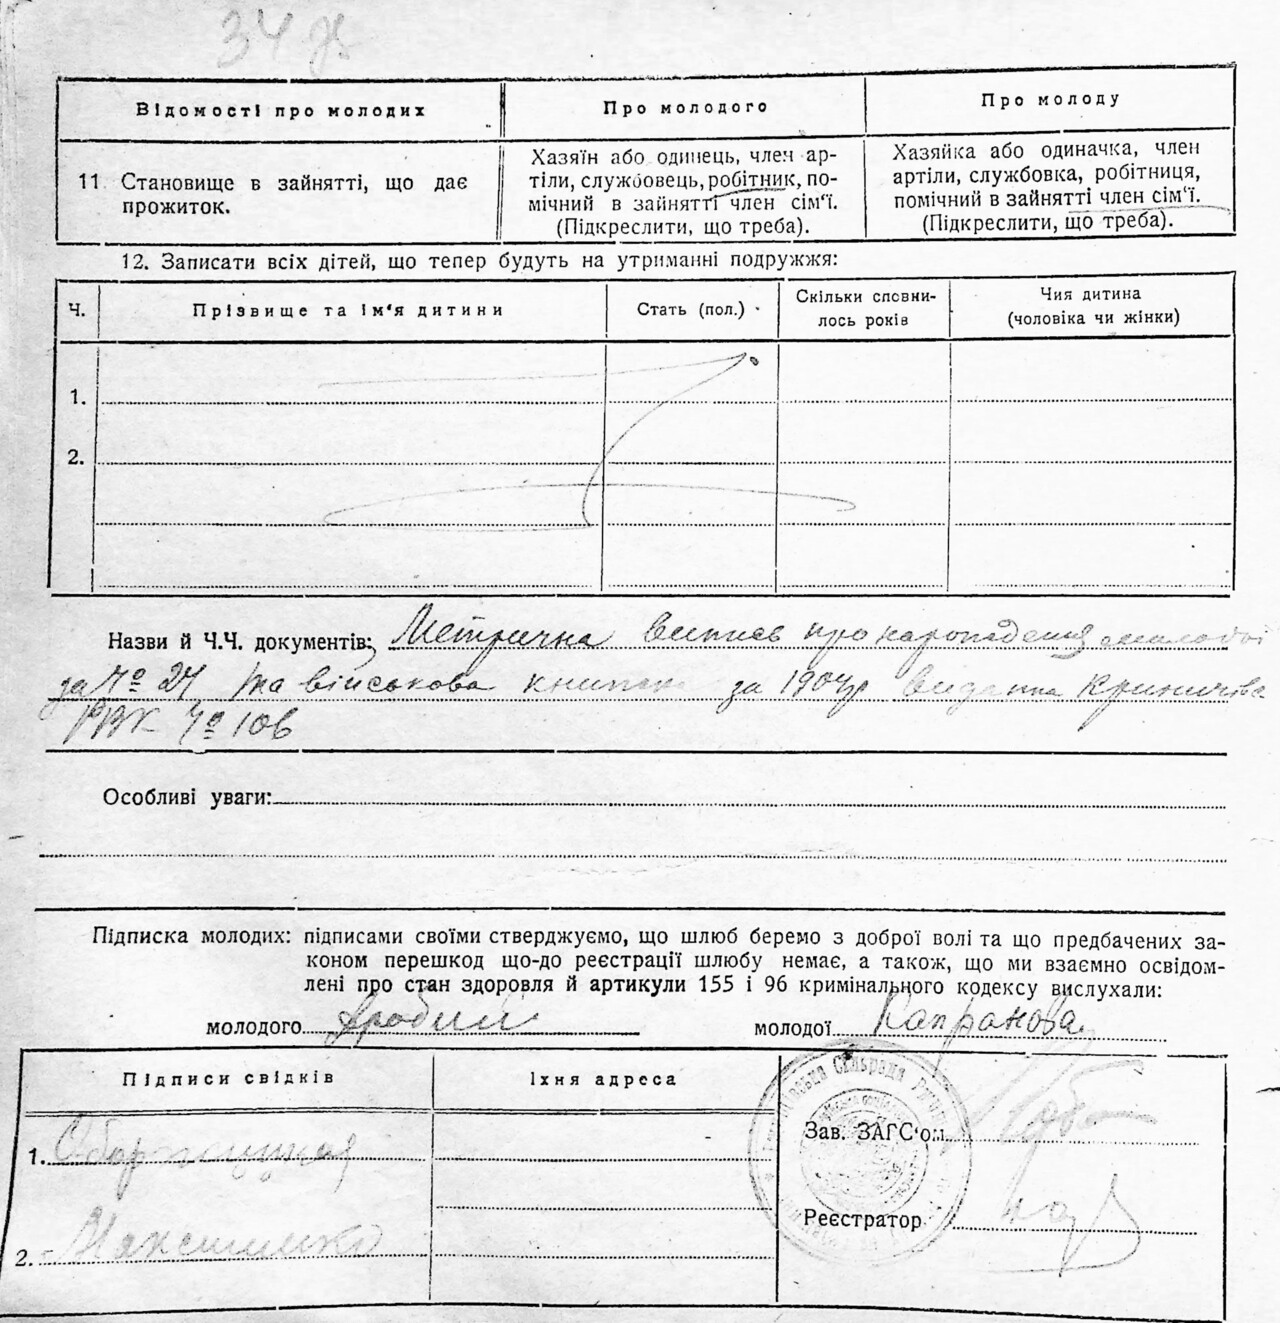 34
Відомості про молодих
Про молодого
Про молоду
11. Становище в зайнятті, що дає
прожиток.
Хазяїн або одинець, член ар-
тіли, службовець, робітник, по-
мічний в зайнятті член сім'ї.
(Підкреслити, що треба).
Хазяйка або одиначка, член
артіли, службовка, робітниця,
помічний в зайнятті член сім'ї.
(Підкреслити, що треба).
12. Записати всіх дітей, що тепер будуть на утриманні подружжя:
Ч.
Прізвище та ім'я дитини
Стать (пол.)
Скільки сповни-
лось років
Чия дитина
(чоловіка чи жінки)
1.
2.
Назви й Ч.Ч. документів: Метрична випись про народження молодої
за № 24 та військова книжка за 1904 р видана
РВК № 106
Особливі уваги:
Підписка молодих: підписами своїми стверджуємо, що шлюб беремо з доброї волі та що предбачених за-
коном перешкод що-до реєстрації шлюбу немає, а також, що ми взаємно освідом-
лені про стан здоровля й артикули 155 і 96 кримінального кодексу вислухали:
молодого
молодої Капранова
Підписи свідків
Їхня адреса
1.
2. Максименко
Зав. ЗАГС'ом
Реєстратор
Сільрада